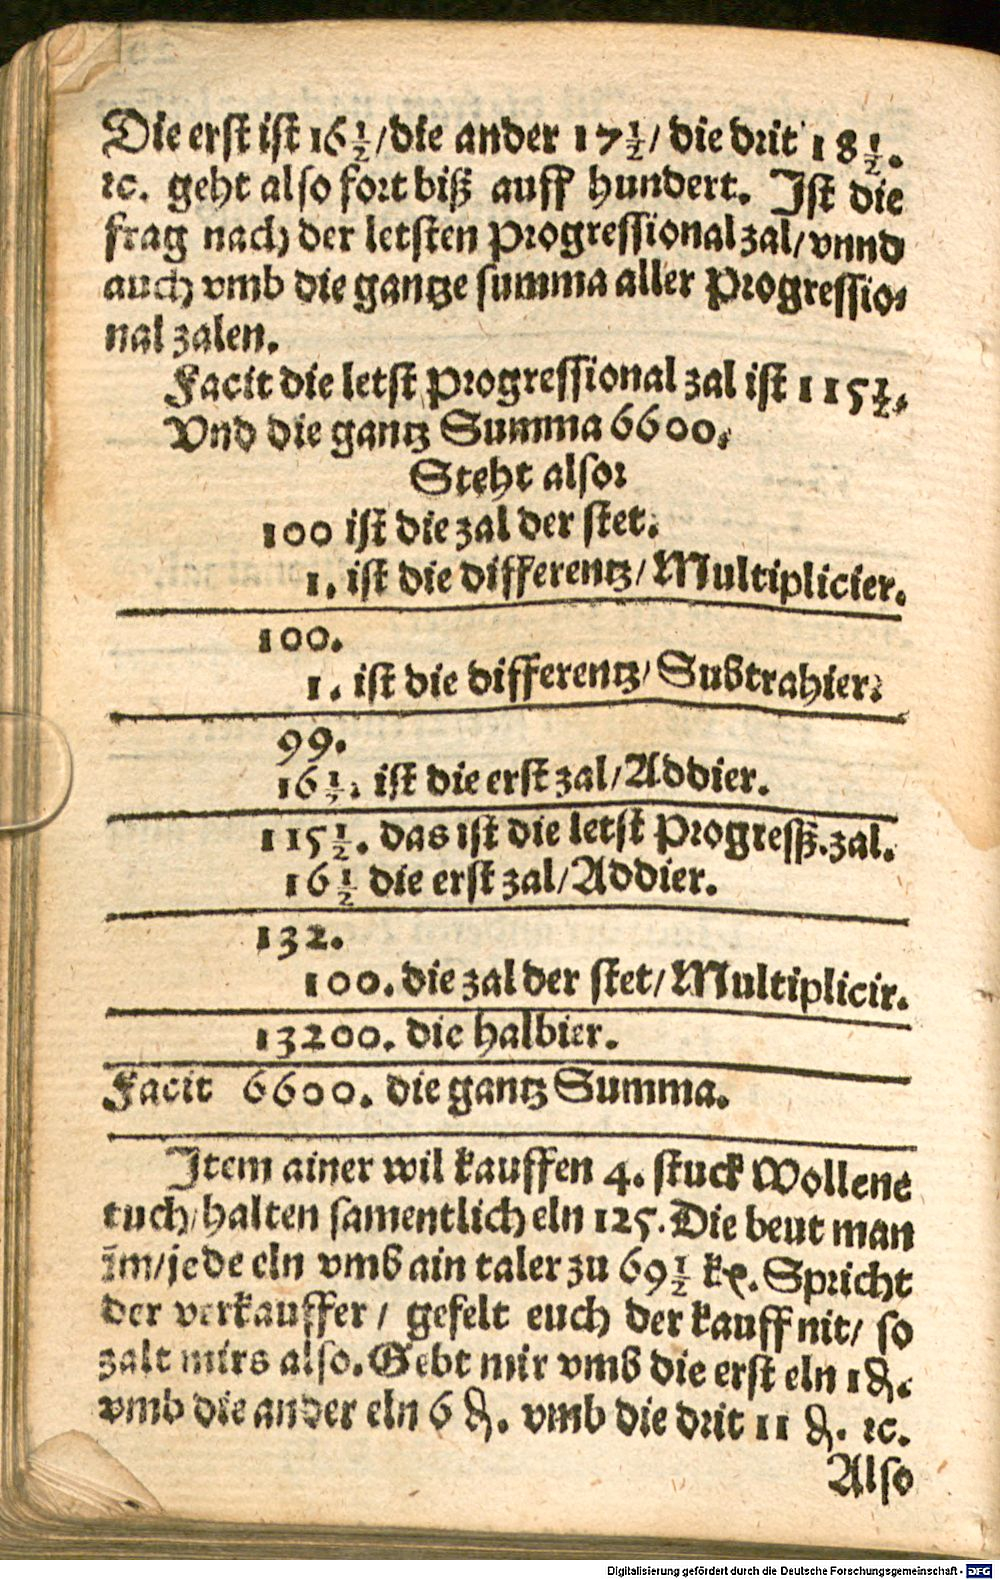 Die erst ist 16 1/2/ die ander 17 1/2/ die drit 18 1/2.
ꝛc. geht also fort biß auff hundert. Ist die
frag nach der letsten Progressional zal/ vnnd
auch vmb die gantze summa aller Progressio⸗
nal zalen.
Facit die letst Progressional zal ist 115 1/2.
Vnd die gantz Summa 6600.
Steht also:
100 ist die zal der stet.
1. ist die differentz/ Multiplicier.
100.
1. ist die differentz/ Subtrahier.
99.
16 1/2. ist die erst zal/ Addier.
115 1/2. das ist die letst Progreß. zal.
16 1/2 die erst zal/ Addier.
132.
100. die zal der stet/ Multiplicir.
13200. die halbier.
Facit 6600. die gantz Summa.
Item ainer wil kauffen 4. stuck Wollene
tuch/ halten samentlich eln 125. Die beut man
im/ jede eln vmb ain taler zu 69 1/2 kr. Spricht
der verkauffer/ gefelt euch der kauff nit/ so
zalt mirs also. Gebt mir vmb die erst eln 1 ₰.
vmb die ander eln 6 ₰. vmb die drit 11 ₰. ꝛc.
Also
Digitalisierung gefördert durch die Deutsche Forschungsgemeinschaft - DFG